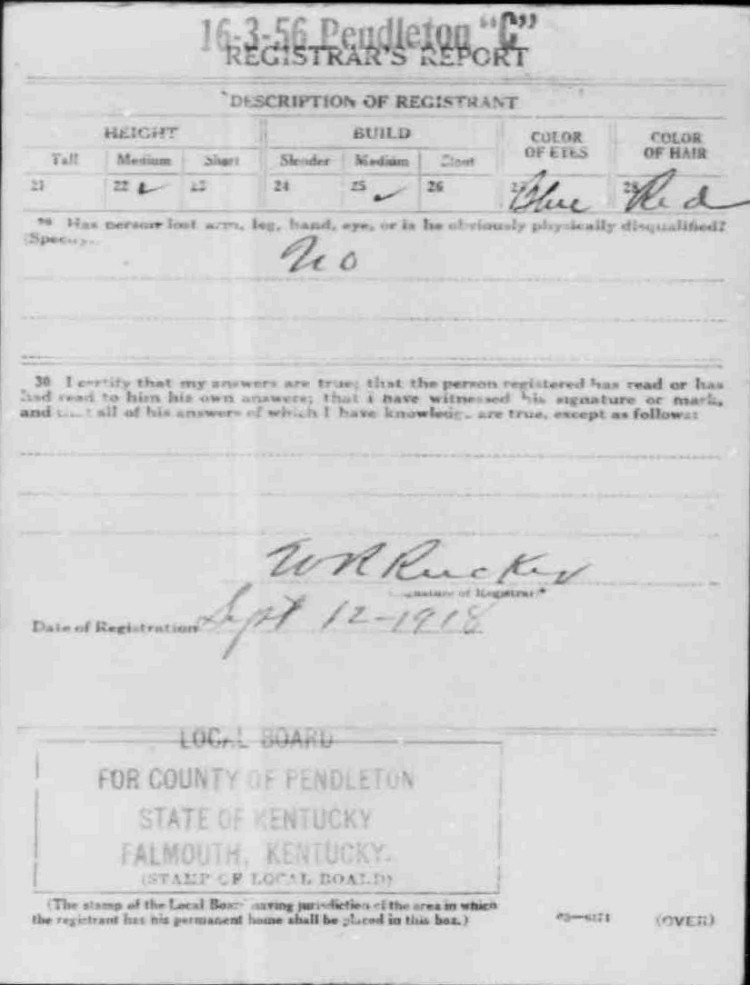 16-3-56 Pendleton "C"
REGISTRAR'S REPORT
DESCRIPTION OF REGISTRANT
HEIGHT BUILD COLOR OF EYES COLOR OF HAIR
Tall Medium Short Slender Medium Stout
21 22 ✓ 23 24 25 ✓ 26 27 Blue 28 Red
29 Has person lost arm, leg, hand, eye, or is he obviously physically disqualified?
(Specify.)
No
30 I certify that my answers are true; that the person registered has read or has
had read to him his own answers; that I have witnessed his signature or mark,
and that all of his answers of which I have knowledge are true, except as follows:
W R Rucker
Signature of Registrar
Date of Registration Sept 12-1918
LOCAL BOARD
FOR COUNTY OF PENDLETON
STATE OF KENTUCKY
FALMOUTH, KENTUCKY.
(STAMP OF LOCAL BOARD)
(The stamp of the Local Board having jurisdiction of the area in which
the registrant has his permanent home shall be placed in this box.)
(OVER)